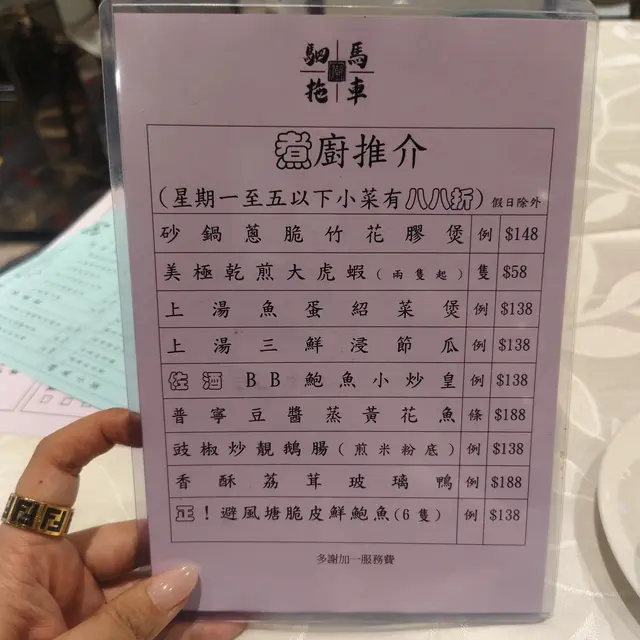 駟馬
拖車
煮廚推介
(星期一至五以下小菜有八八折) 假日除外
砂鍋蔥脆竹花膠煲 例 $148
美極乾煎大虎蝦(兩隻起) 隻 $58
上湯魚蛋紹菜煲 例 $138
上湯三鮮浸節瓜 例 $138
佐酒BB鮑魚小炒皇 例 $138
普寧豆醬蒸黃花魚 條 $188
豉椒炒靚鵝腸(煎米粉底) 例 $138
香酥荔茸玻璃鴨 例 $188
正!避風塘脆皮鮮鮑魚(6隻) 例 $138
多謝加一服務費